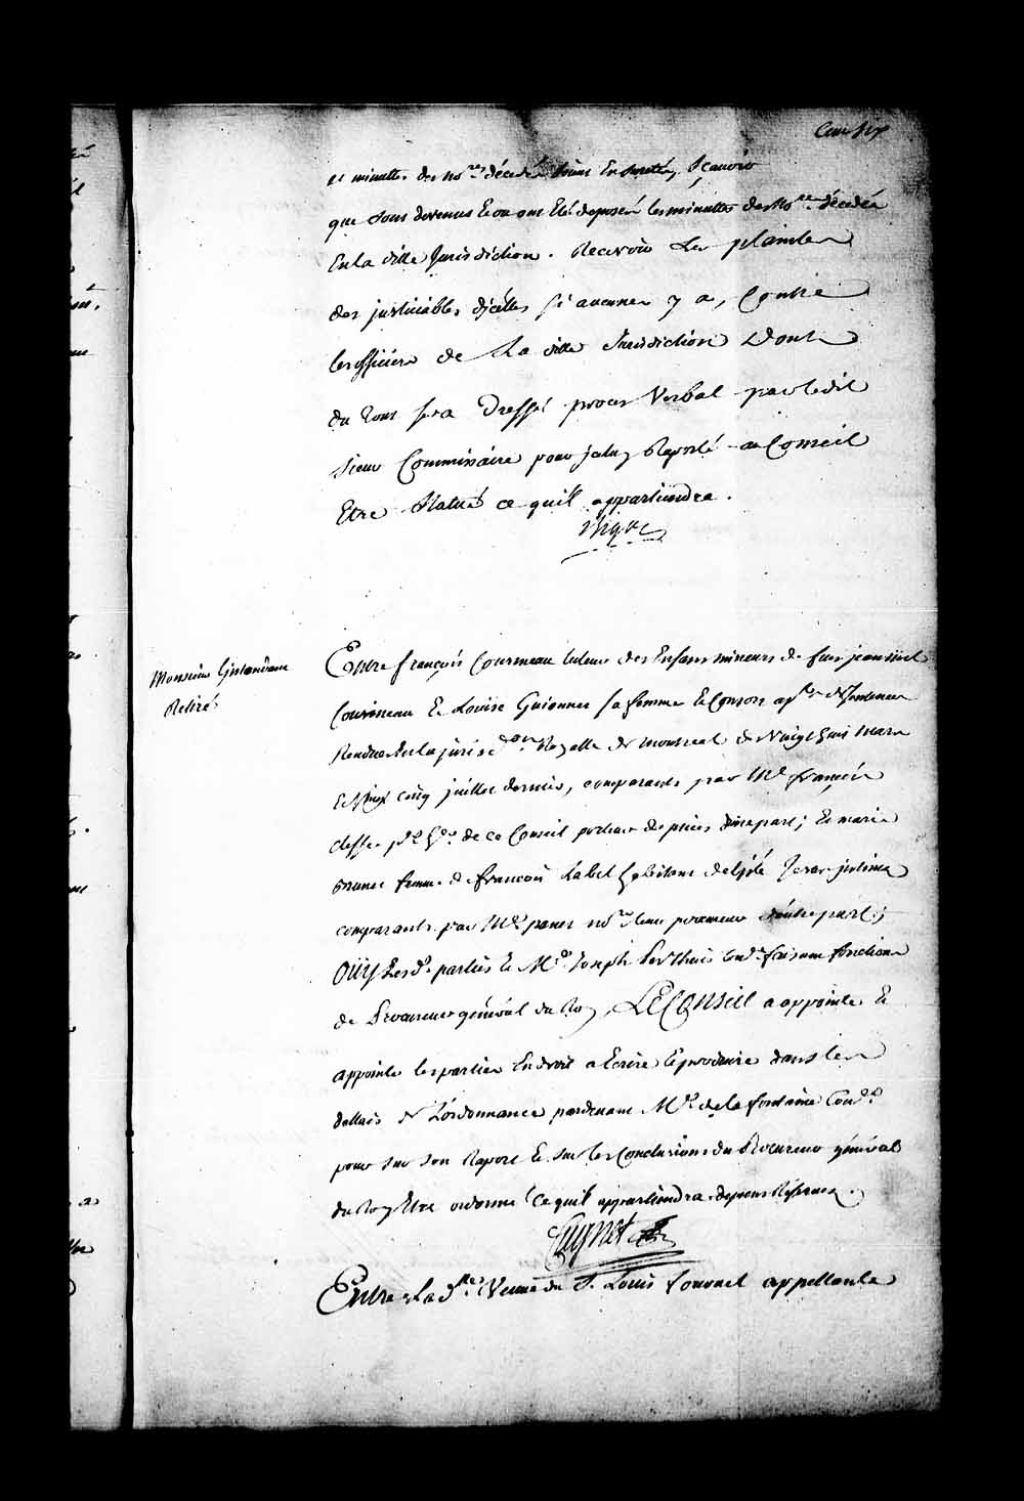 Cent six
et minuttes des no.res décédés soient En sureté, sçavoir
que sont devenus Et ou ont Eté deposés les minuttes des No.res décédés
En la ditte Jurisdiction. Recevoir Les plaintes
des justiciables d'jcelles si aucunes y a, Contre
les officiers de La ditte Jurisdiction Dont
du tout sera Dressé procès Verbal par ledit
sieur Commissaire pour jceluy Raporté au Conseil
Etre Statué ce quil appartiendra.
Monsieur
Retiré
Entre françois Courneau tuteur des Enfans mineurs de feu jean
Courneau Et Louise Guionnet sa femme Et Consors de Sentences
Rendue En la jurisd.on Royalle de Montreal de Vingt huit Mars
Et cinq juillet dernier, comparants par M.e françois
de ce Conseil porteur de pieces d'une part; Et marie
Brunet femme de françois Label habitant de l'jsle Jesus jntimée
comparante par M.e panet no.re leur procureur d'autre part;
OÜY Lesd. parties Et M.e Joseph Perthuis Cons.er faisant fonctions
de Procureur général du Roy, LE CONSEIL a appointé Et
appointe les parties En droit a Ecrire Et produire dans les
dellais de L'ordonnance pardevant M.e de la fontaine Cons.er
pour sur son Raport Et sur les Conclusions du Procureur général
du Roy Etre ordonné Ce quil appartiendra dépens Réservés.
Cugnet
Entre La d.lle Veuve du S. Louis appellante